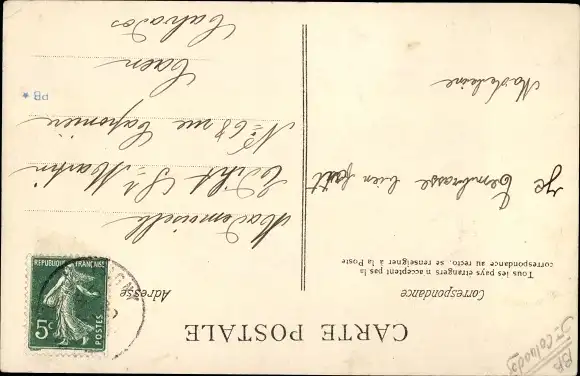 CARTE POSTALE
Correspondance
Tous les pays étrangers n'acceptent pas la
correspondance au recto. se renseigner à la Poste
Je t'embrasse bien fort
Madeleine
Adresse
Mademoiselle
St Martin
No 68 rue Caponière
Caen
Calvados
PB *
REPUBLIQUE FRANÇAISE
5c
POSTES
Calvados